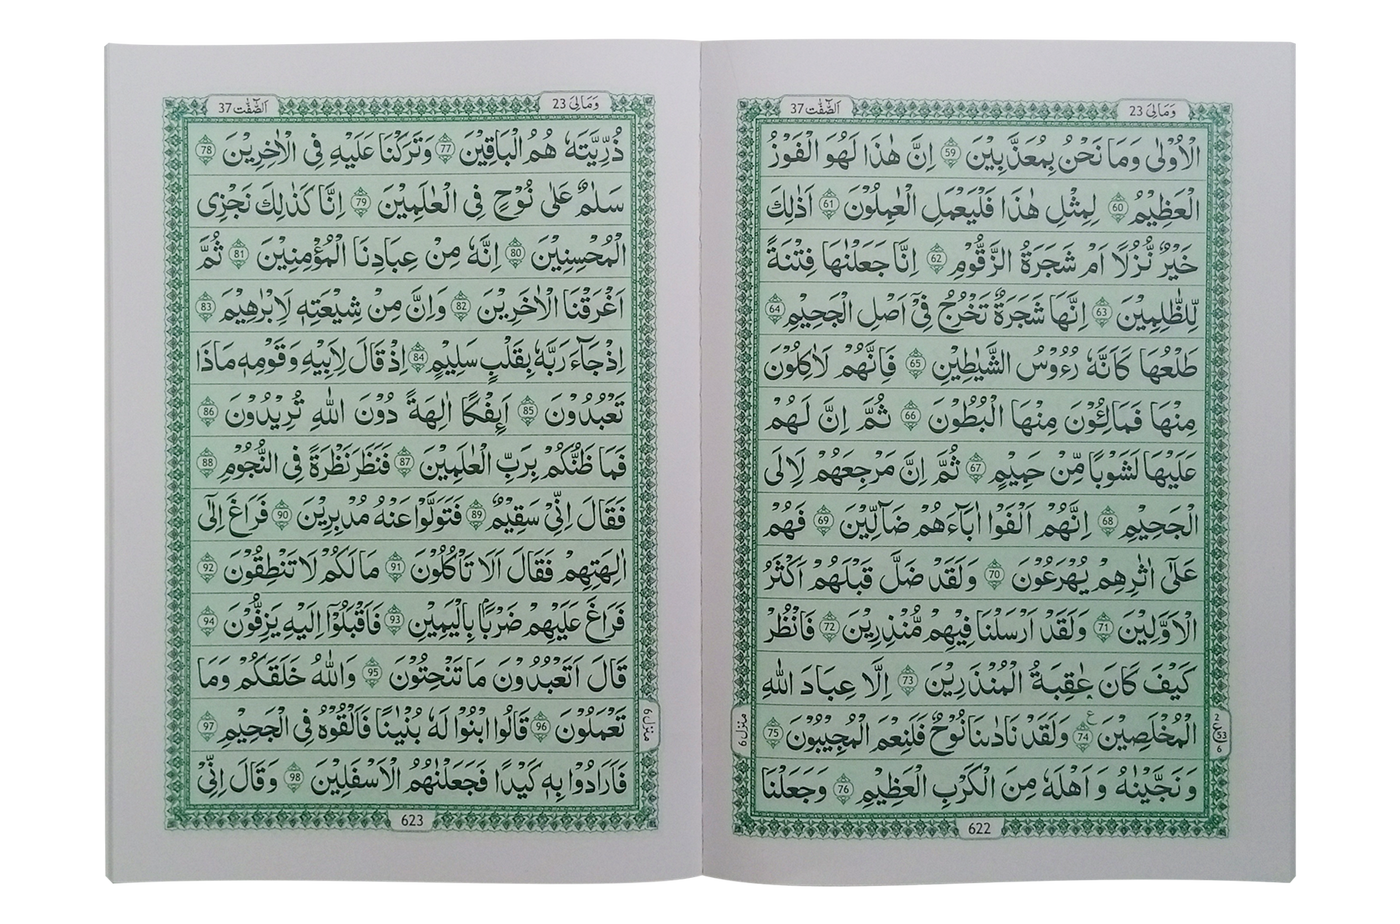 وَمَالِیَ 23
اَلصّٰٓفّٰت 37
الْاُوْلٰى وَمَا نَحْنُ بِمُعَذَّبِيْنَ 59 اِنَّ هٰذَا لَهُوَ الْفَوْزُ
الْعَظِيْمُ 60 لِمِثْلِ هٰذَا فَلْيَعْمَلِ الْعٰمِلُوْنَ 61 اَذٰلِكَ
خَيْرٌ نُّزُلًا اَمْ شَجَرَةُ الزَّقُّوْمِ 62 اِنَّا جَعَلْنٰهَا فِتْنَةً
لِّلظّٰلِمِيْنَ 63 اِنَّهَا شَجَرَةٌ تَخْرُجُ فِيْٓ اَصْلِ الْجَحِيْمِ 64
طَلْعُهَا كَاَنَّهٗ رُءُوْسُ الشَّيٰطِيْنِ 65 فَاِنَّهُمْ لَاٰكِلُوْنَ
مِنْهَا فَمَالِـُٔوْنَ مِنْهَا الْبُطُوْنَ 66 ثُمَّ اِنَّ لَهُمْ
عَلَيْهَا لَشَوْبًا مِّنْ حَمِيْمٍ 67 ثُمَّ اِنَّ مَرْجِعَهُمْ لَاِلَى
الْجَحِيْمِ 68 اِنَّهُمْ اَلْفَوْا اٰبَآءَهُمْ ضَآلِّيْنَ 69 فَهُمْ
عَلٰٓى اٰثٰرِهِمْ يُهْرَعُوْنَ 70 وَلَقَدْ ضَلَّ قَبْلَهُمْ اَكْثَرُ
الْاَوَّلِيْنَ 71 وَلَقَدْ اَرْسَلْنَا فِيْهِمْ مُّنْذِرِيْنَ 72 فَانْظُرْ
كَيْفَ كَانَ عَاقِبَةُ الْمُنْذَرِيْنَ 73 اِلَّا عِبَادَ اللّٰهِ
الْمُخْلَصِيْنَ 74 وَلَقَدْ نَادٰىنَا نُوْحٌ فَلَنِعْمَ الْمُجِيْبُوْنَ 75
وَنَجَّيْنٰهُ وَاَهْلَهٗ مِنَ الْكَرْبِ الْعَظِيْمِ 76 وَجَعَلْنَا
2
ع 53
6
منزل 6
622
وَمَالِیَ 23
اَلصّٰٓفّٰت 37
ذُرِّيَّتَهٗ هُمُ الْبَاقِيْنَ 77 وَتَرَكْنَا عَلَيْهِ فِى الْاٰخِرِيْنَ 78
سَلٰمٌ عَلٰى نُوْحٍ فِى الْعٰلَمِيْنَ 79 اِنَّا كَذٰلِكَ نَجْزِى
الْمُحْسِنِيْنَ 80 اِنَّهٗ مِنْ عِبَادِنَا الْمُؤْمِنِيْنَ 81 ثُمَّ
اَغْرَقْنَا الْاٰخَرِيْنَ 82 وَاِنَّ مِنْ شِيْعَتِهٖ لَاِبْرٰهِيْمَ 83
اِذْ جَآءَ رَبَّهٗ بِقَلْبٍ سَلِيْمٍ 84 اِذْ قَالَ لِاَبِيْهِ وَقَوْمِهٖ مَاذَا
تَعْبُدُوْنَ 85 اَئِفْكًا اٰلِهَةً دُوْنَ اللّٰهِ تُرِيْدُوْنَ 86
فَمَا ظَنُّكُمْ بِرَبِّ الْعٰلَمِيْنَ 87 فَنَظَرَ نَظْرَةً فِى النُّجُوْمِ 88
فَقَالَ اِنِّيْ سَقِيْمٌ 89 فَتَوَلَّوْا عَنْهُ مُدْبِرِيْنَ 90 فَرَاغَ اِلٰٓى
اٰلِهَتِهِمْ فَقَالَ اَلَا تَاْكُلُوْنَ 91 مَا لَكُمْ لَا تَنْطِقُوْنَ 92
فَرَاغَ عَلَيْهِمْ ضَرْبًا بِالْيَمِيْنِ 93 فَاَقْبَلُوْٓا اِلَيْهِ يَزِفُّوْنَ 94
قَالَ اَتَعْبُدُوْنَ مَا تَنْحِتُوْنَ 95 وَاللّٰهُ خَلَقَكُمْ وَمَا
تَعْمَلُوْنَ 96 قَالُوا ابْنُوْا لَهٗ بُنْيَانًا فَاَلْقُوْهُ فِى الْجَحِيْمِ 97
فَاَرَادُوْا بِهٖ كَيْدًا فَجَعَلْنٰهُمُ الْاَسْفَلِيْنَ 98 وَقَالَ اِنِّيْ
منزل 6
623